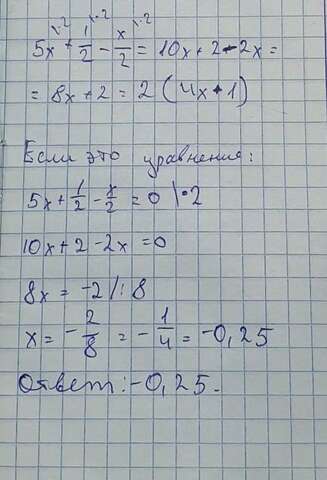 5x\·2 + 1/2\·2 - x/2\·2 = 10x + 2 - 2x =
= 8x + 2 = 2 (4x + 1)
Если это уравнения:
5x + 1/2 - x/2 = 0 |·2
10x + 2 - 2x = 0
8x = -2 /: 8
x = - 2/8 = - 1/4 = -0,25
Ответ: -0,25.